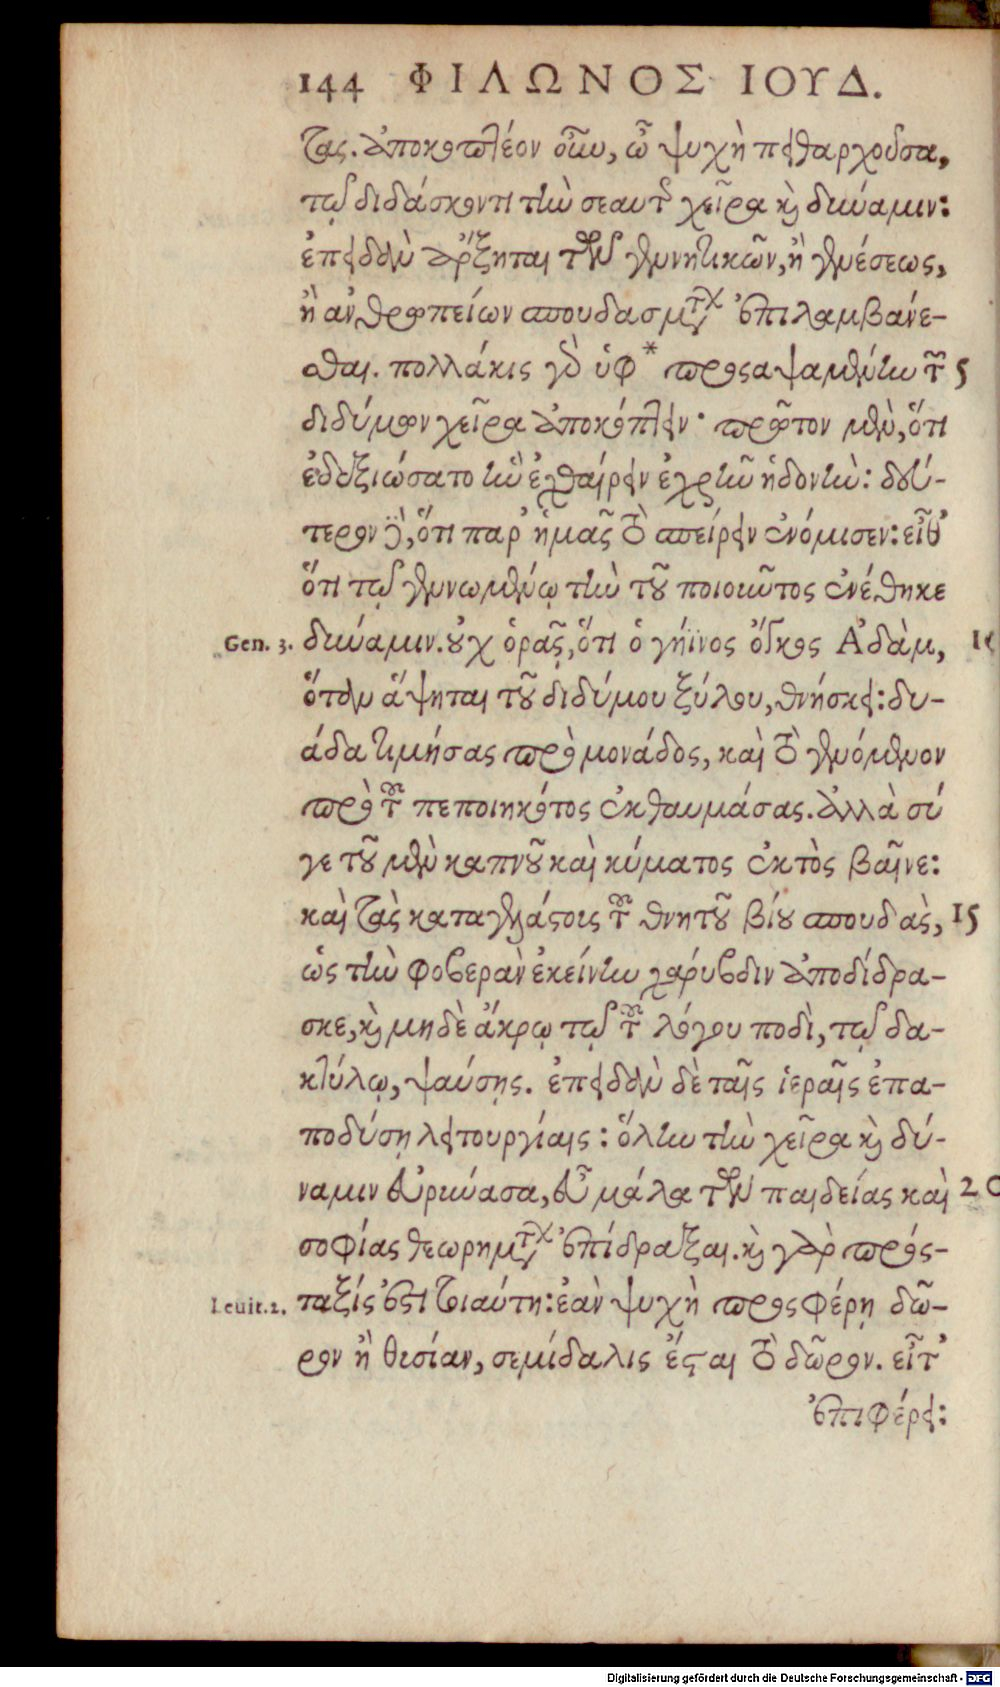 144 ΦΙΛΩΝΟΣ ΙΟΥΔ.
τας. ἀποκοπτέον οὖν, ὦ ψυχὴ πειθαρχοῦσα,
τῷ διδάσκοντι τὴν σεαυτῆς χεῖρα καὶ δύναμιν:
ἐπειδὰν ἄρξηται τῶν γεννητικῶν, ἢ γενέσεως,
ἢ ἀνθρωπείων σπουδασμάτων ἐπιλαμβάνε-
σθαι. πολλάκις γὰρ ὑφ * προσαψαμένην τῶν 5
διδύμων χεῖρα ἀποκόπτειν· πρῶτον μὲν, ὅτι
ἐδεξιώσατο ἣν ἐχθαίρειν ἐχρῆν ἡδονήν: δεύ-
τερον δὲ, ὅτι παρ' ἡμᾶς τὸ σπείρειν ἐνόμισεν: εἶθ'
ὅτι τῷ γεννωμένῳ τὴν τοῦ ποιοῦντος ἀνέθηκε
Gen. 3. δύναμιν. οὐχ ὁρᾷς, ὅτι ὁ γήϊνος ὄγκος Ἀδὰμ, 10
ὅταν ἅψηται τοῦ διδύμου ξύλου, θνήσκει: δυ-
άδα τιμήσας πρὸ μονάδος, καὶ τὸ γενόμενον
πρὸ τοῦ πεποιηκότος ἐκθαυμάσας. ἀλλὰ σύ
γε τοῦ μὲν καπνοῦ καὶ κύματος ἐκτὸς βαῖνε:
καὶ τὰς καταγελάστους τοῦ θνητοῦ βίου σπουδὰς, 15
ὡς τὴν φοβερὰν ἐκείνην χάρυβδιν ἀποδίδρα-
σκε, καὶ μηδὲ ἄκρῳ τῷ τοῦ λόγου ποδὶ, τῷ δα-
κτύλῳ, ψαύσῃς. ἐπειδὰν δὲ ταῖς ἱεραῖς ἐπα-
ποδύσῃ λειτουργίαις: ὅλην τὴν χεῖρα καὶ δύ-
ναμιν εὐρύνασα, εὖ μάλα τῶν παιδείας καὶ 20
σοφίας θεωρημάτων ἐπίδραξαι. καὶ γὰρ πρός-
Leuit. 2. ταξίς ἐστι τοιαύτη: ἐὰν ψυχὴ προσφέρῃ δῶ-
ρον ἢ θυσίαν, σεμίδαλις ἔσται τὸ δῶρον. εἶτ'
ἐπιφέρει:
Digitalisierung gefördert durch die Deutsche Forschungsgemeinschaft - DFG